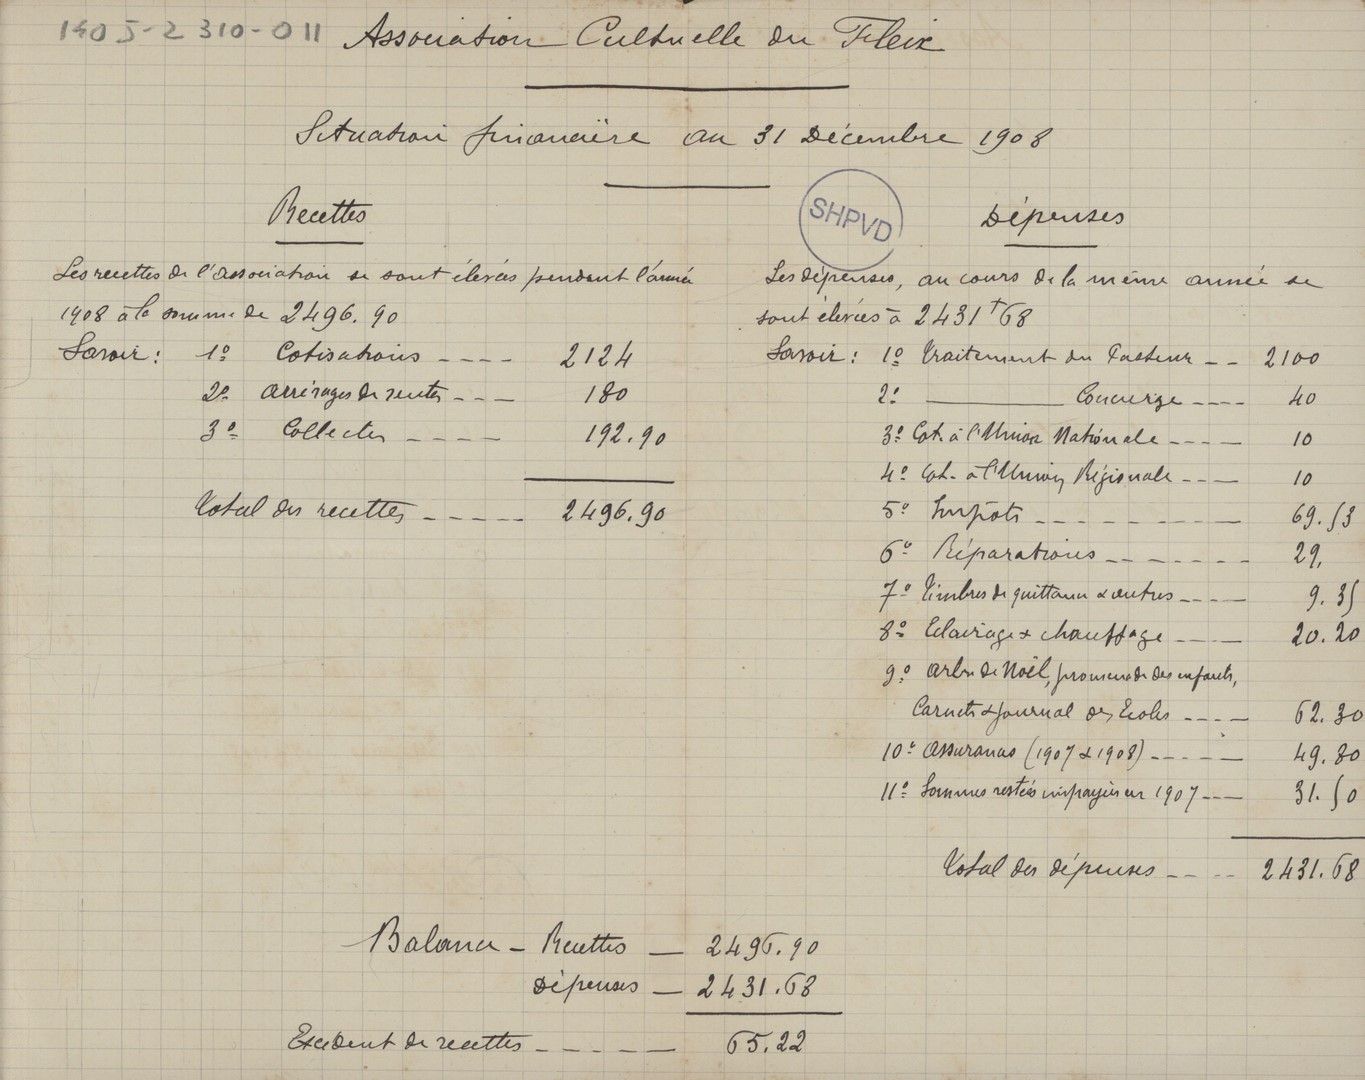 1405-2310-011
Association Cultuelle du Fleix
Situation financière au 31 Décembre 1908
SHPVD
Recettes
Les recettes de l'association se sont élevées pendant l'année
1908 à la somme de 2496.90
Savoir : 1º Cotisations ---- 2124
2º Arrérages de rentes --- 180
3º Collectes ---- 192.90
Total des recettes ----- 2496.90
Dépenses
Les dépenses, au cours de la même année se
sont élevées à 2431f68
Savoir : 1º Traitement du Pasteur -- 2100
2º ——— Concierge ---- 40
3º Cot. à l'Union Nationale ---- 10
4º Cot. à l'Union Régionale ---- 10
5º Impôts --------- 69.53
6º Réparations ------- 29,
7º Timbres de quittance & autres ---- 9.35
8º Eclairage & chauffage ---- 20.20
9º Arbre de Noël, promenade des enfants,
Carnets & journal des Ecoles ---- 62.30
10º Assurances (1907 & 1908) ----- 49.80
11º Sommes restées impayées en 1907 --- 31.50
Total des dépenses ---- 2431.68
Balance - Recettes — 2496.90
Dépenses — 2431.68
Excédent de recettes ----- 65.22